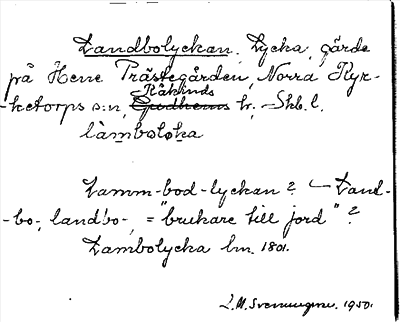 Landbolyckan. Lycka, gärde
på Hene Prästegården, Norra Kyr-
-ketorps s:n, Kåkinds hr, Skb. l.
làmbolóka
Lamm-bod-lyckan? — Land-
-bo-, landbo-, = "brukare till jord"?
Lambolycka lm. 1801.
L. M. Svenungsson. 1950.